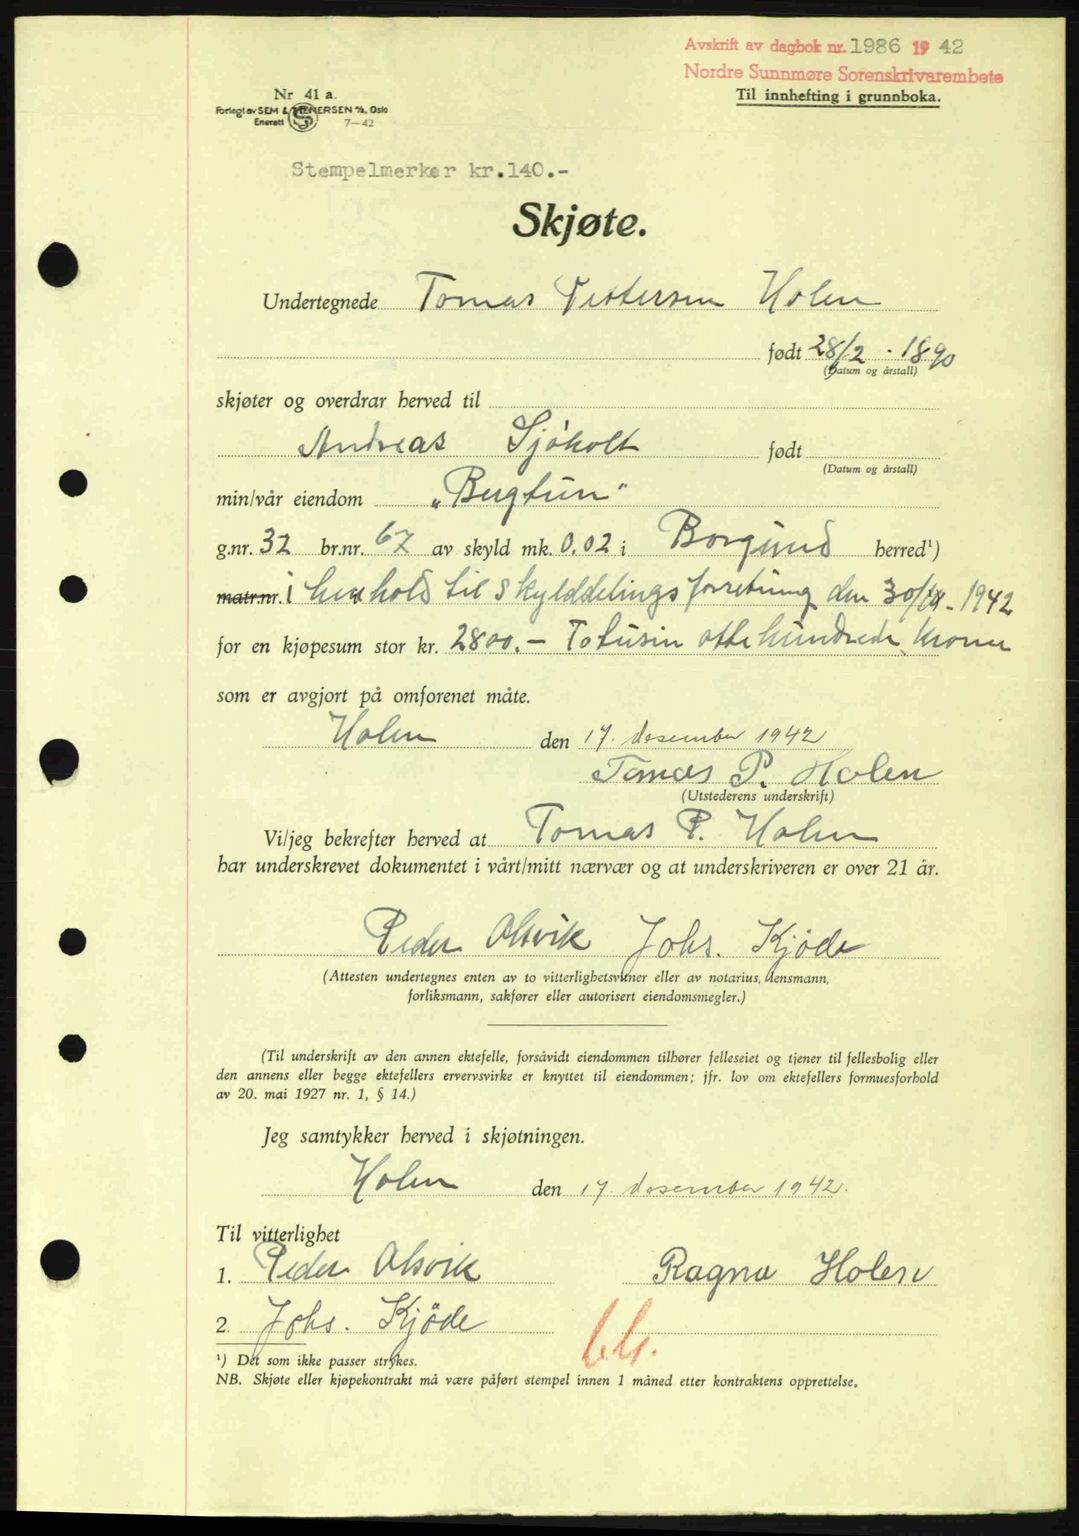 Avskrift av dagbok nr. 1986 19 42
Nordre Sunnmøre Sorenskrivarembete
Til innhefting i grunnboka.
Nr 41 a.
Forlagt av SEM & STENERSEN A/S, Oslo
Enerett 7-42
Stempelmerker kr.140.-
Skjøte.
Undertegnede Tomas Pettersen Holen
født 28/2 - 1890
(Datum og årstall)
skjøter og overdrar herved til
Andreas Sjøholt født
(Datum og årstall)
min/vår eiendom "Bugtun"
g.nr. 32 br.nr. 67 av skyld mk. 0.02 i Borgund herred¹)
matr.nr. i henhold til skylddelingsforretning den 30/ - 1942
for en kjøpesum stor kr. 2800.- Totusin ottehundrede kroner
som er avgjort på omforenet måte.
Holen den 17. desember 1942
Tomas P. Holen
(Utstederens underskrift)
Vi/jeg bekrefter herved at Tomas P. Holen
har underskrevet dokumentet i vårt/mitt nærvær og at underskriveren er over 21 år.
Peder Alsvik Johs. Kjöde
(Attesten undertegnes enten av to vitterlighetsvitner eller av notarius, lensmann,
forliksmann, sakfører eller autorisert eiendomsmegler.)
(Til underskrift av den annen ektefelle, forsåvidt eiendommen tilhører felleseiet og tjener til fellesbolig eller
den annens eller begge ektefellers ervervsvirke er knyttet til eiendommen; jfr. lov om ektefellers formuesforhold
av 20. mai 1927 nr. 1, § 14.)
Jeg samtykker herved i skjøtningen.
Holen den 17. desember 1942.
Til vitterlighet
1. Peder Alsvik Ragna Holen
2. Johs. Kjöde
¹) Det som ikke passer strykes.
NB. Skjøte eller kjøpekontrakt må være påført stempel innen 1 måned etter kontraktens opprettelse.